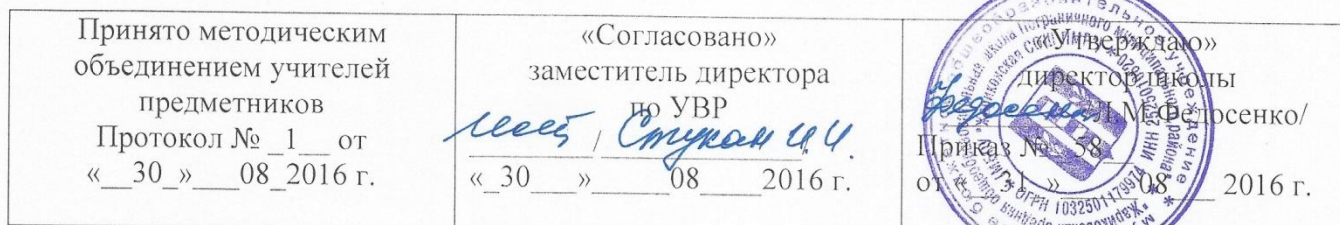 Принято методическим
объединением учителей
предметников
Протокол № _1__ от
«__30_»___08_2016 г.
«Согласовано»
заместитель директора
по УВР
/ Стукан И.И.
«_30___»______08____2016 г.
«Утверждаю»
директор школы
Л.М.Федосенко/
Приказ № _58_
от « 31 » 08 2016 г.
ОГРН 1032501179974